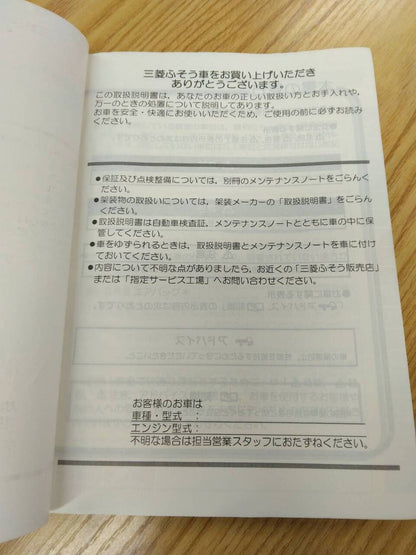 三菱ふそう車をお買い上げいただき
ありがとうございます。
この取扱説明書は、あなたのお車の正しい取扱い方とお手入れや、
万一のときの処置について説明してあります。
お車を安全・快適にお使いいただくため、ご使用の前に必ずお読み
ください。
●保証及び点検整備については、別冊のメンテナンスノートをごらんく
ださい。
●架装物の取扱いについては、架装メーカーの「取扱説明書」をごらん
ください。
●取扱説明書は自動車検査証、メンテナンスノートとともに車の中に保
管してください。
●車をゆずられるときは、取扱説明書とメンテナンスノートを車に付け
ておいてください。
●内容について不明な点がありましたら、お近くの「三菱ふそう販売店」
または「指定サービス工場」へお問い合わせください。
お客様のお車は
車種・型式　：
エンジン型式：
不明な場合は担当営業スタッフにおたずねください。